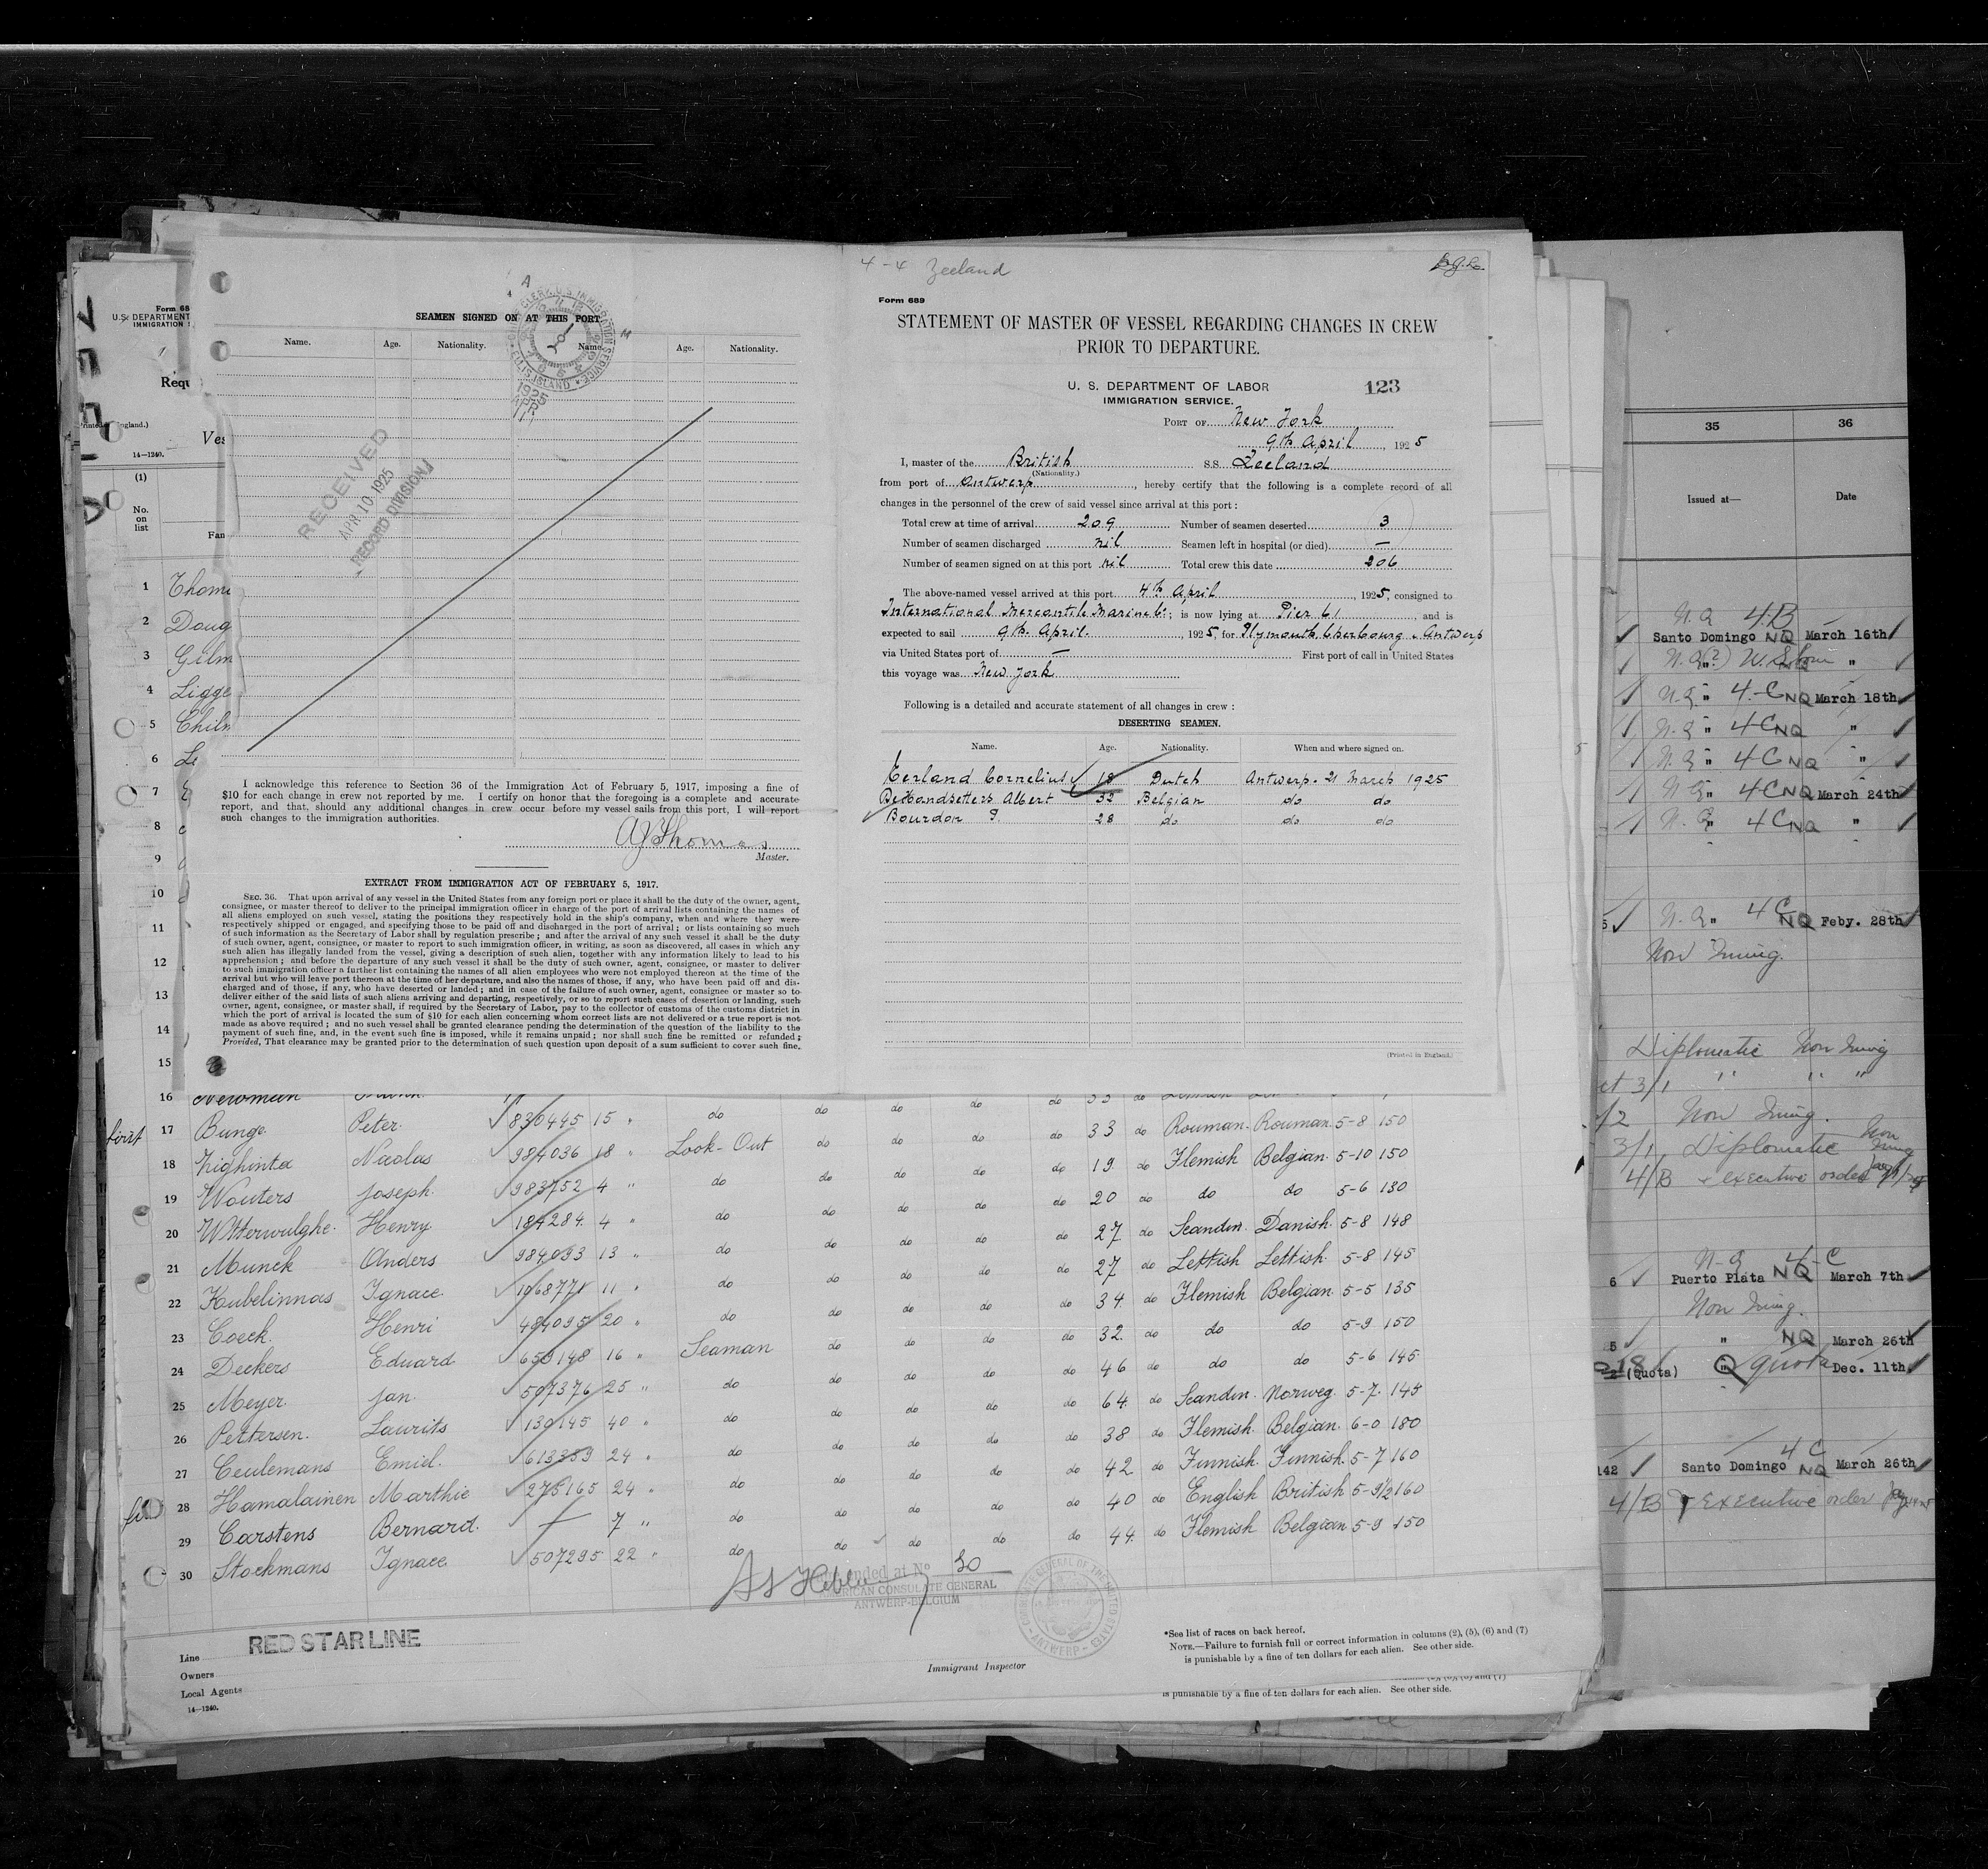 4-4 Zeeland
Form 689
STATEMENT OF MASTER OF VESSEL REGARDING CHANGES IN CREW
PRIOR TO DEPARTURE.
U. S. DEPARTMENT OF LABOR
IMMIGRATION SERVICE.
123
PORT OF New York
9th April, 1925
I, master of the British S.S. Zeeland
(Nationality.)
from port of Antwerp, hereby certify that the following is a complete record of all
changes in the personnel of the crew of said vessel since arrival at this port :
Total crew at time of arrival 209 Number of seamen deserted 3
Number of seamen discharged nil Seamen left in hospital (or died) —
Number of seamen signed on at this port nil Total crew this date 206
The above-named vessel arrived at this port 4th April, 1925, consigned to
International Mercantile Marine Co; is now lying at Pier 61, and is
expected to sail 9th April, 1925, for Plymouth, Cherbourg & Antwerp,
via United States port of — First port of call in United States
this voyage was New York
Following is a detailed and accurate statement of all changes in crew :
DESERTING SEAMEN.
Name. Age. Nationality. When and where signed on.
Cornelius 18 Dutch Antwerp. 21 March 1925
Albert 32 Belgian do do
Bourdon P. 28 do do do
(Printed in England.)
SEAMEN SIGNED ON AT THIS PORT
Name. Age. Nationality. Name. Age. Nationality.
RECEIVED
APR 10 1925
RECORD DIVISION
I acknowledge this reference to Section 36 of the Immigration Act of February 5, 1917, imposing a fine of
$10 for each change in crew not reported by me. I certify on honor that the foregoing is a complete and accurate
report, and that, should any additional changes in crew occur before my vessel sails from this port, I will report
such changes to the immigration authorities.
Master.
EXTRACT FROM IMMIGRATION ACT OF FEBRUARY 5, 1917.
SEC. 36. That upon arrival of any vessel in the United States from any foreign port or place it shall be the duty of the owner, agent,
consignee, or master thereof to deliver to the principal immigration officer in charge of the port of arrival lists containing the names of
all aliens employed on such vessel, stating the positions they respectively hold in the ship's company, when and where they were
respectively shipped or engaged, and specifying those to be paid off and discharged in the port of arrival ; or lists containing so much
of such information as the Secretary of Labor shall by regulation prescribe ; and after the arrival of any such vessel it shall be the duty
of such owner, agent, consignee, or master to report to such immigration officer, in writing, as soon as discovered, all cases in which any
such alien has illegally landed from the vessel, giving a description of such alien, together with any information likely to lead to his
apprehension ; and before the departure of any such vessel it shall be the duty of such owner, agent, consignee, or master to deliver
to such immigration officer a further list containing the names of all alien employees who were not employed thereon at the time of the
arrival but who will leave port thereon at the time of her departure, and also the names of those, if any, who have been paid off and dis-
charged and of those, if any, who have deserted or landed ; and in case of the failure of such owner, agent, consignee or master so to
deliver either of the said lists of such aliens arriving and departing, respectively, or so to report such cases of desertion or landing, such
owner, agent, consignee, or master shall, if required by the Secretary of Labor, pay to the collector of customs of the customs district in
which the port of arrival is located the sum of $10 for each alien concerning whom correct lists are not delivered or a true report is not
made as above required ; and no such vessel shall be granted clearance pending the determination of the question of the liability to the
payment of such fine, and, in the event such fine is imposed, while it remains unpaid ; nor shall such fine be remitted or refunded ;
Provided, That clearance may be granted prior to the determination of such question upon deposit of a sum sufficient to cover such fine.
16 Newman
17 Bunge Peter 830445 15 " do do do do do 33 do Rouman. Rouman. 5-8 150
18 Nicolas 984036 18 " Look-Out do do do do 19 do Flemish Belgian 5-10 150
19 Wouters Joseph 983752 4 " do do do do do 20 do do do 5-6 130
20 Henry 184284 4 " do do do do do 27 do Scandin. Danish. 5-8 148
21 Munck Anders 984093 13 " do do do do do 27 do Lettish Lettish 5-8 145
22 Kubelinnas Ignace 1068771 11 " do do do do do 34 do Flemish Belgian 5-5 135
23 Coeck Henri 484095 20 " do do do do do 32 do do do 5-9 150
24 Deckers Eduard 659148 16 " Seaman do do do do 46 do do do 5-6 145
25 Meyer Jan 507376 25 " do do do do do 64 do Scandin. Norweg. 5-7 145
26 Pettersen. Laurits 130145 40 " do do do do do 38 do Flemish Belgian. 6-0 180
27 Ceulemans Emiel. 613359 24 " do do do do do 42 do Finnish. Finnish. 5-7 160
28 Hamalainen Marthie 275165 24 " do do do do do 40 do English British 5-9½ 160
29 Carstens Bernard. 7 " do do do do do 44 do Flemish Belgian 5-9 150
30 Stockmans Ignace 507295 22 " do
30
AMERICAN CONSULATE GENERAL
ANTWERP-BELGIUM
Line RED STAR LINE
Owners
Local Agents
14-1240.
Immigrant Inspector
*See list of races on back hereof.
NOTE.—Failure to furnish full or correct information in columns (2), (5), (6) and (7)
is punishable by a fine of ten dollars for each alien. See other side.
is punishable by a fine of ten dollars for each alien. See other side.
Form 68
U.S. DEPARTMENT
IMMIGRATION
Requ
14-1240.
(1)
No.
on
list
1 Thom
2 Doug
3 Gilm
4 Ligge
5 Chilm
6
7
8
9
10
11
12
13
14
15
35 36
Issued at— Date
N.Q 4B
Santo Domingo NQ March 16th
N.Q " 4-C NQ March 18th
N.Q " 4C NQ "
N.Q " 4C NQ "
N.Q " 4C NQ March 24th
N.Q " 4C NQ "
N.Q " 4C NQ Feby. 28th
Non Immig.
Diplomatic Non Immig
3/1 " " "
1/2 Non Immig.
3/1 Diplomatic Non Immig
4/B executive order
N-Q 4-C
6 Puerto Plata NQ March 7th
Non Immig.
5 " NQ March 26th
(Quota) Q quota Dec. 11th
4 C
142 Santo Domingo NQ March 26th
4/B executive order